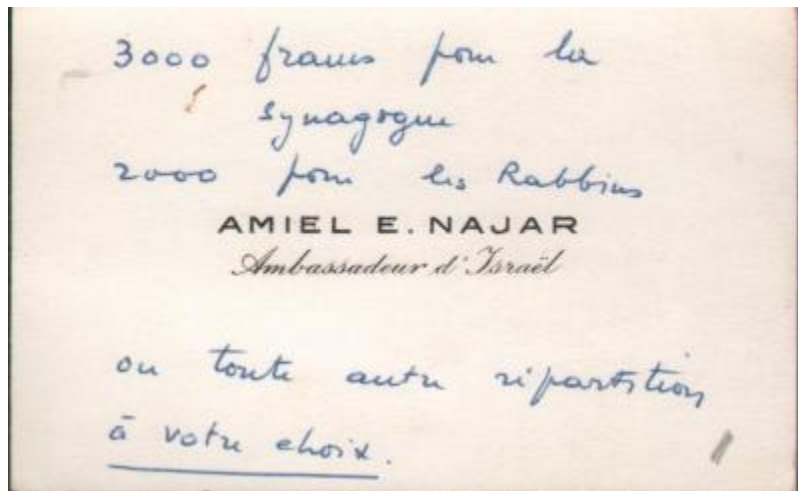 3000 francs pour la
synagogue
2000 pour les Rabbins
AMIEL E. NAJAR
Ambassadeur d'Israël
ou toute autre répartition
à votre choix.